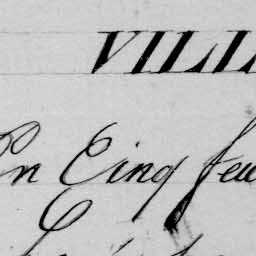 VILL
En Cinq feu